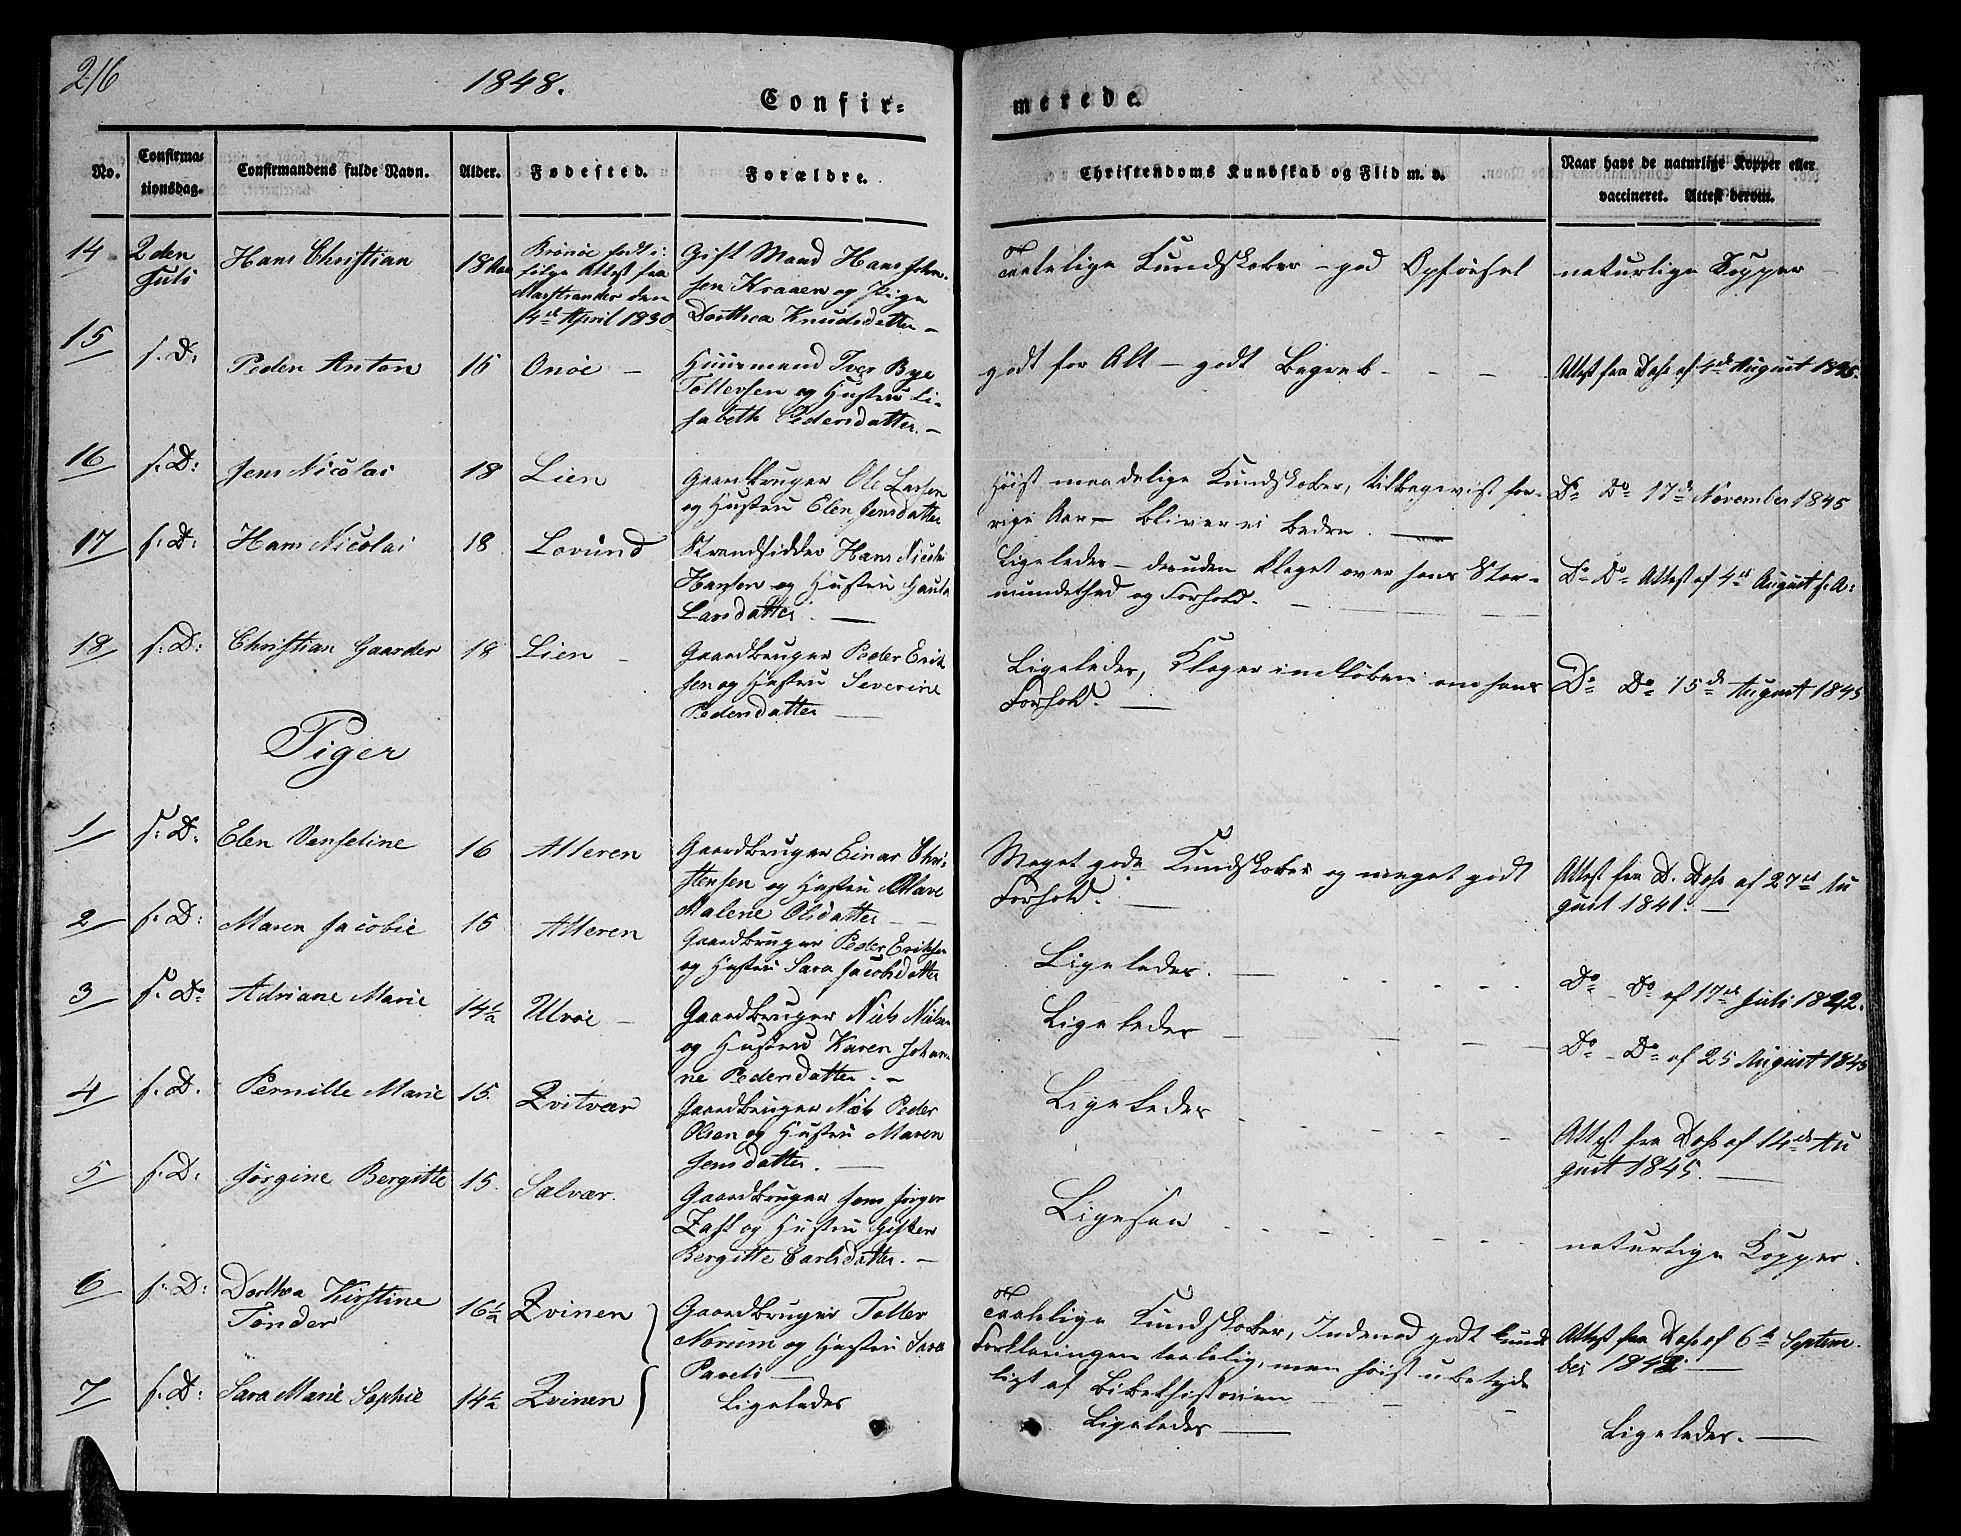 216
1848.
Confir-
merede.
No.
Confirma-
tionsdag.
Confirmandens fulde Navn.
Alder.
Fødested.
Forældre.
Christendoms Kundskab og Flid m. v.
Naar havt de naturlige Kopper eller
vaccineret. Attest derom.
14
2den
Juli
Hans Christian
18 Aar
Brønøe født i-
følge Attest fra
Marstrander den
14de April 1830
Gift Mand Hans John-
sen Kraaen og Pige
Dorthea Knudsdatter –
Taalelige Kundskaber – god Opførsel
naturlige Kopper –
15
s. D:
Peder Anton
16
Onøe –
Huusmand Iver Bye
Tollevsen og Hustru Li-
sabeth Pedersdatter. –
godt for Alt – godt Begreb - - - -
Attest fra Dass af 4de August 1845.
16
s. D:
Jens Nicolai
18
Lien
Gaardbruger Ole Larsen
og Hustru Elen Jensdatter
Høist maadelige Kundskaber, tilbageviist for-
rige Aar – bliver ei bedre. —
Do Do 17de November 1845
17
s. D:
Hans Nicolai
18
Lovund
Strandsidder Hans Nicolai
Hansen og Hustru
Larsdatter. —
Ligeledes – desuden klaget over hans Stor-
mundethed og Forhold. –
Do Do Attest af 4de August s. A:
18
s. D:
Christian Gaarder
18
Lien –
Gaardbruger Peder Erik-
sen og Hustru Severine
Pedersdatter —
Ligeledes, Klager indløben om hans
Forhold. —
Do Do 15de August 1845
Piger
1
s. D:
Elen Venseline
16
Alteren
Gaardbruger Einar Chri-
stensen og Hustru Mare
Malene Olsdatter –
Meget gode Kundskaber og meget godt
Forhold. —
Attest fra D. Dass af 27de Au
gust 1841. —
2
s. D:
Maren Jacobie
15
Alteren
Gaardbruger Peder Eriksen
og Hustru Sara Jacobsdatter
Ligeledes. —
Do – Do af 17de Juli 1842.
3
s. D:
Adriane Marie
14½
Ulvøe –
Gaardbruger Niels Nielsen
og Hustru Karen Johan-
ne Pedersdatter. –
Ligeledes –
Do – Do af 25 August 1845
4
s. D.
Pernille Marie
15
Qvitvær
Gaardbruger Niels Peder
Olsen og Hustru Maren
Jensdatter. —
Ligeledes
Attest fra Dass af 14de Au
gust 1845. —
5
s. D:
Jørgine Bergitte
15.
Selvær.
Gaardbruger Jens Jørgen
Zahl og Hustru Gisken
Bergitte Carlsdatter. –
Ligesaa
naturlige Kopper.
6
s. D:
Dorthea Kirstine
Tønder
16½
Qvinen
Gaardbruger Toller
Norum og Hustru Sara
Pavels —
Taalelige Kundskaber, Indenad godt kund
Forklaringen taalelig, men høist ubetyde
ligt af Bibelhistorien
Attest fra Dass af 6te Septem-
ber 1842. —
7
s. D:
Sara Marie Sophie
14½
Qvinen
Ligeledes
Ligeledes —
Ligeledes. —